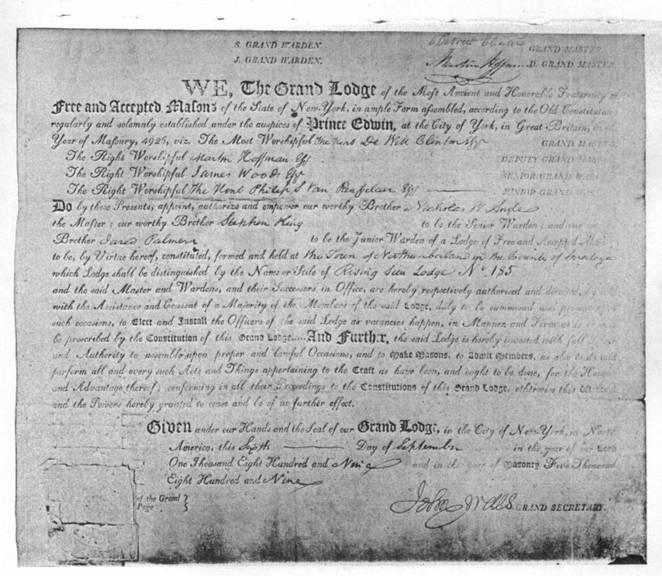 S. GRAND WARDEN.
J. GRAND WARDEN.
GRAND MASTER.
Martin Hoffman D. GRAND MASTER.
WE, The Grand Lodge of the Most Ancient and Honorable Fraternity of
Free and Accepted Masons of the State of New-York, in ample Form assembled, according to the Old Constitutions
regularly and solemnly established under the auspices of Prince Edwin, at the City of York, in Great-Britain, in the
Year of Masonry, 4925, viz. The Most Worshipful The Hons De Witt Clinton Esqr GRAND MASTER
The Right Worshipful Martin Hoffman Esqr DEPUTY GRAND MASTER
The Right Worshipful James Woods Esqr SENIOR GRAND WARD
The Right Worshipful The Hons Philip S Van Rensselaer Esqr
Do by these Presents, appoint, authorize and empower our worthy Brother Nicholas W. Angle
the Master; our worthy Brother Stephen King to be the Senior Warden; and our
Brother Jared Palmer to be the Junior Warden of a Lodge of Free and Accepted
to be, by Virtue hereof, constituted, formed and held at the Town of Northumberland in the County of Saratoga
which Lodge shall be distinguished by the Name or Stile of Rising Sun Lodge No. 185
and the said Master and Wardens, and their Successors in Office, are hereby respectively authorised and directed, by
with the Assistance and Consent of a Majority of the Members of the said Lodge, duly to be summoned and present
such occasions, to Elect and Install the Officers of the said Lodge as vacancies happen, in Manner and Form as
be prescribed by the Constitution of this Grand Lodge....And Further, the said Lodge is hereby invested with full
and Authority to assemble upon proper and lawful Occasions, and to Make Masons, to Admit Members, as also to do and
perform all and every such Acts and Things appertaining to the Craft as have been, and ought to be done, for the Honor
and Advantage thereof; conforming in all their Proceedings to the Constitutions of this Grand Lodge, otherwise this
and the Powers hereby granted to cease and be of no further effect.
Given under our Hands and the Seal of our Grand Lodge, in the City of New-York, in North
America, this Sixth Day of September in the year of our Lord
One Thousand Eight Hundred and Nine and in the year of Masonry Five Thousand
Eight Hundred and Nine
of the Grand
Page
GRAND SECRETARY.